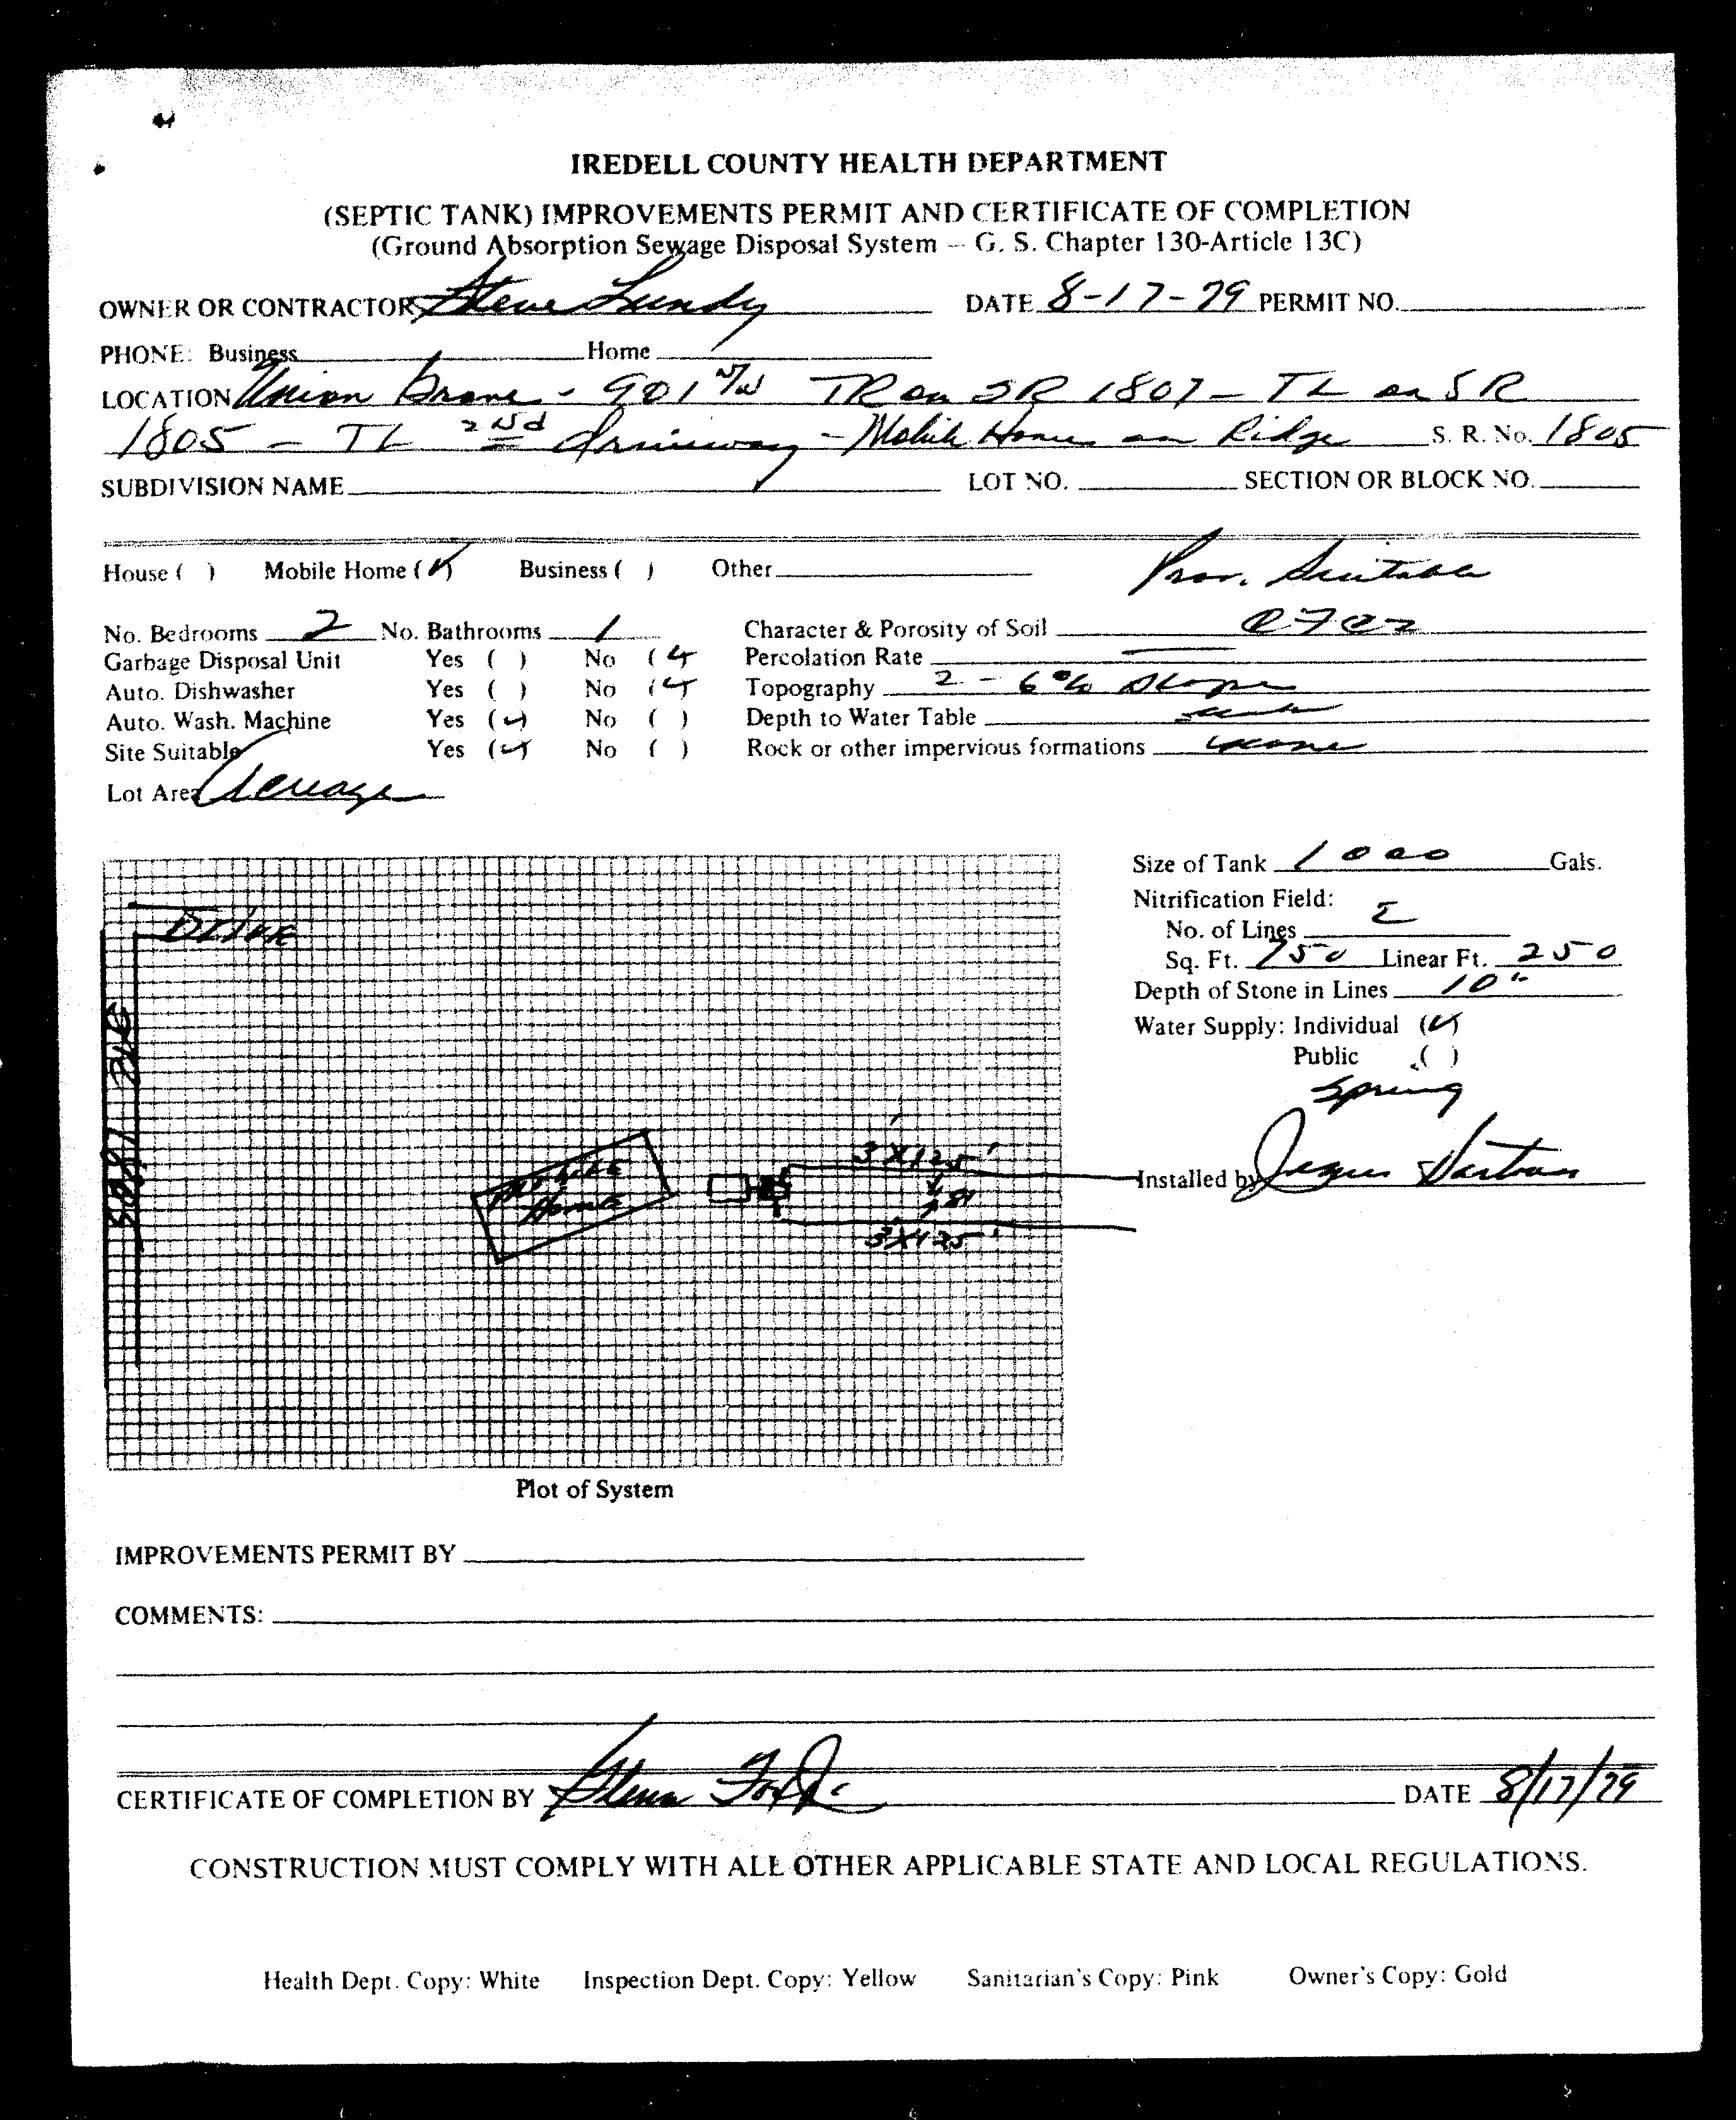 IREDELL COUNTY HEALTH DEPARTMENT
(SEPTIC TANK) IMPROVEMENTS PERMIT AND CERTIFICATE OF COMPLETION
(Ground Absorption Sewage Disposal System – G. S. Chapter 130-Article 13C)
OWNER OR CONTRACTOR Steve Lundy DATE 8-17-79 PERMIT NO.
PHONE: Business Home
LOCATION Union Grove - 901 N/W TR on SR 1807 - TL on SR
1805 - TL 2nd driveway - Mobile Home on Ridge S. R. No. 1805
SUBDIVISION NAME LOT NO. SECTION OR BLOCK NO.
House ( ) Mobile Home (✓) Business ( ) Other Prov. Suitable
No. Bedrooms 2 No. Bathrooms 1 Character & Porosity of Soil
Garbage Disposal Unit Yes ( ) No (✓) Percolation Rate —
Auto. Dishwasher Yes ( ) No (✓) Topography 2 - 6% Slope
Auto. Wash. Machine Yes (✓) No ( ) Depth to Water Table
Site Suitable Yes (✓) No ( ) Rock or other impervious formations none
Lot Area Acreage
Size of Tank 1000 Gals.
Nitrification Field:
No. of Lines 2
Sq. Ft. 750 Linear Ft. 250
Depth of Stone in Lines 10"
Water Supply: Individual (✓)
Public ( )
Spring
Installed by
Drive
SR 1805
Mobile
Home
3' X 125'
8'
3' X 125'
Plot of System
IMPROVEMENTS PERMIT BY
COMMENTS:
CERTIFICATE OF COMPLETION BY Glenn DATE 8/17/79
CONSTRUCTION MUST COMPLY WITH ALL OTHER APPLICABLE STATE AND LOCAL REGULATIONS.
Health Dept. Copy: White Inspection Dept. Copy: Yellow Sanitarian's Copy: Pink Owner's Copy: Gold